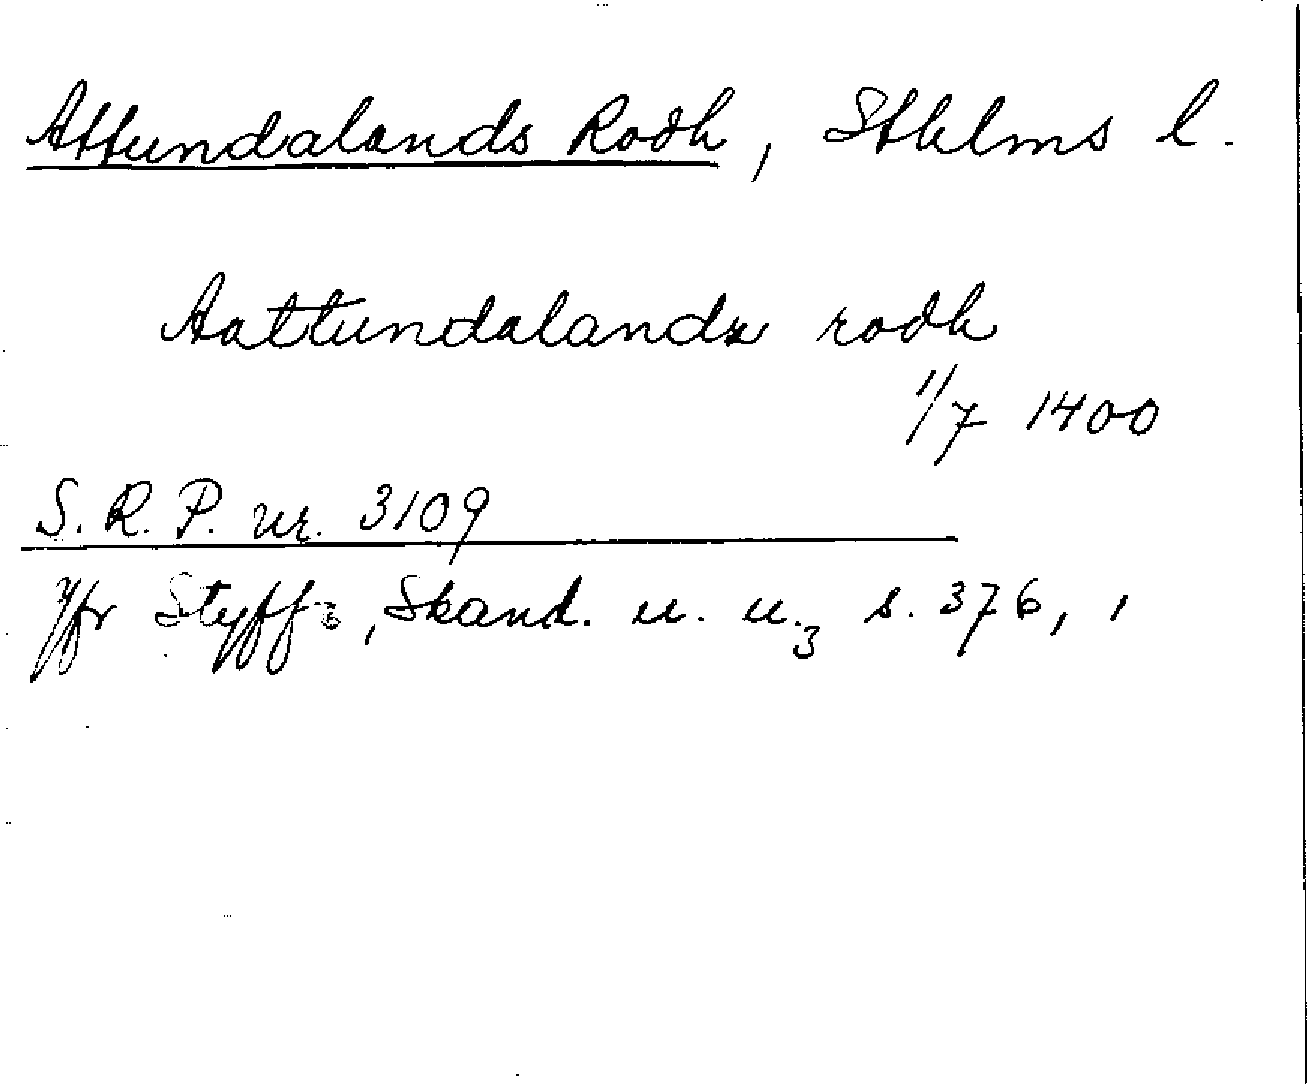 Attundalands Rodh, Sthlms l.
Aattundalandx rodh
11/7 1400
S. R. P. nr. 3109
Jfr Styffe, Skand. u. u. 3 s. 376, 1